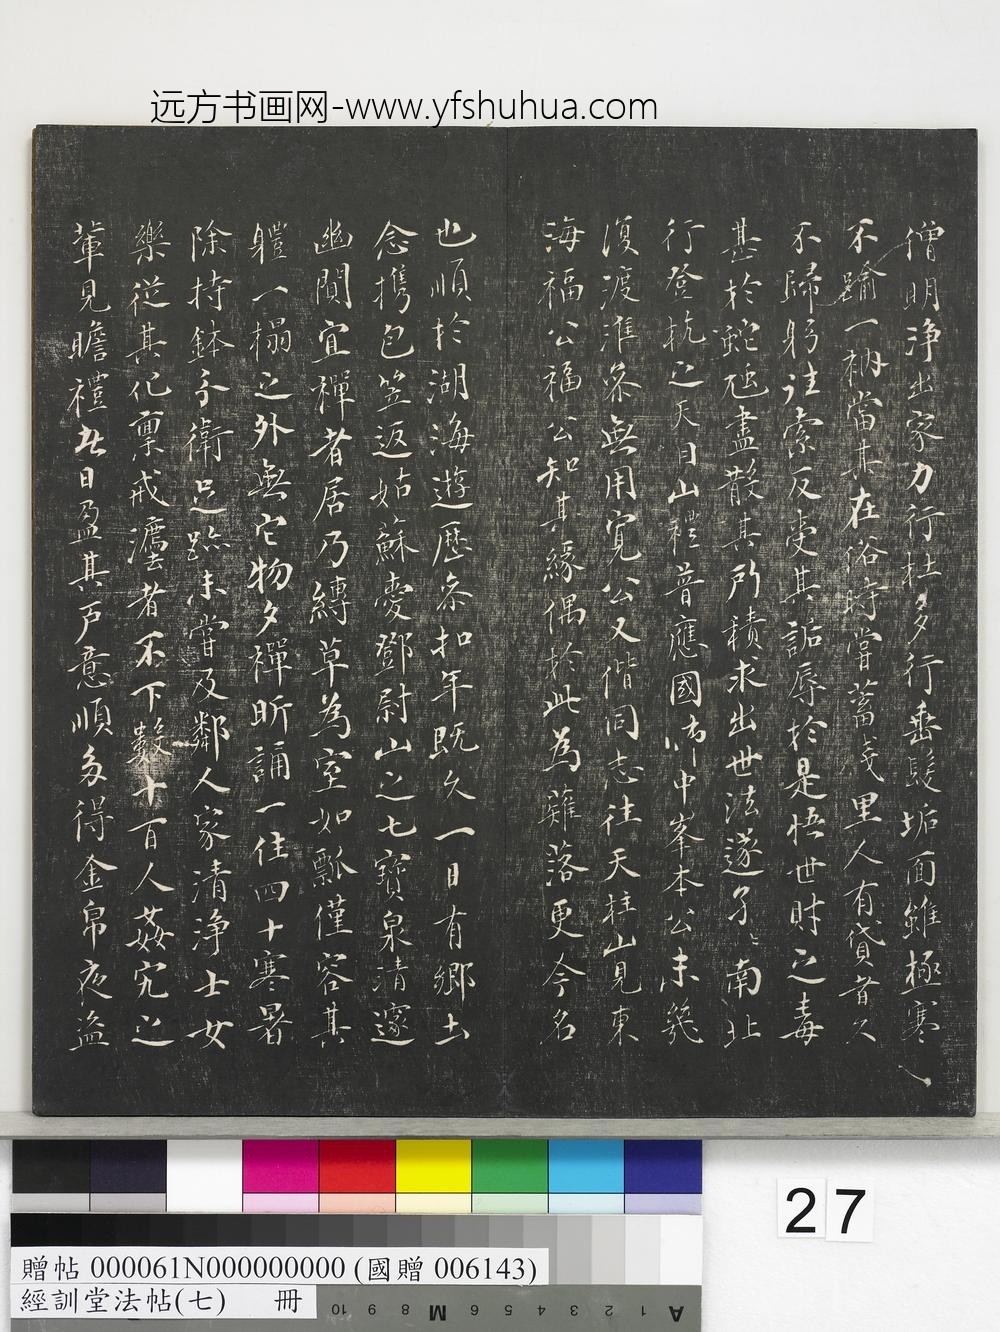 远方书画网-www.yfshuhua.com
僧明淨出家力行杜多行垂髮垢面雖極寒
不踰一衲當其在俗時嘗蓄錢里人有貸者久
不歸躬往索反受其詬辱於是悟世財之毒
甚於蛇虺盡散其所積求出世法遂孑孑南北
行登杭之天目山禮普應國師中峯本公未幾
復渡淮參無用寬公又偕同志往天柱山見東
海福公福公知其緣偶於此為薙落更今名
也順於湖海遊歷參扣年既久一日有鄉土
念携包笠返姑蘇愛鄧尉山之七寶泉清邃
幽閒宜禪者居乃縛草為室如瓢僅容其
軆一榻之外無它物夕禪昕誦一住四十寒暑
除持鉢乞衛足跡未嘗及鄰人家清淨士女
樂從其化稟戒灋者不下數十百人姦宄之
輩見瞻禮者日盈其戶意順多得金帛夜盜
27
贈帖 000061N000000000 (國贈 006143)
經訓堂法帖(七) 冊
10 9 8 M 6 5 4 3 2 1 A